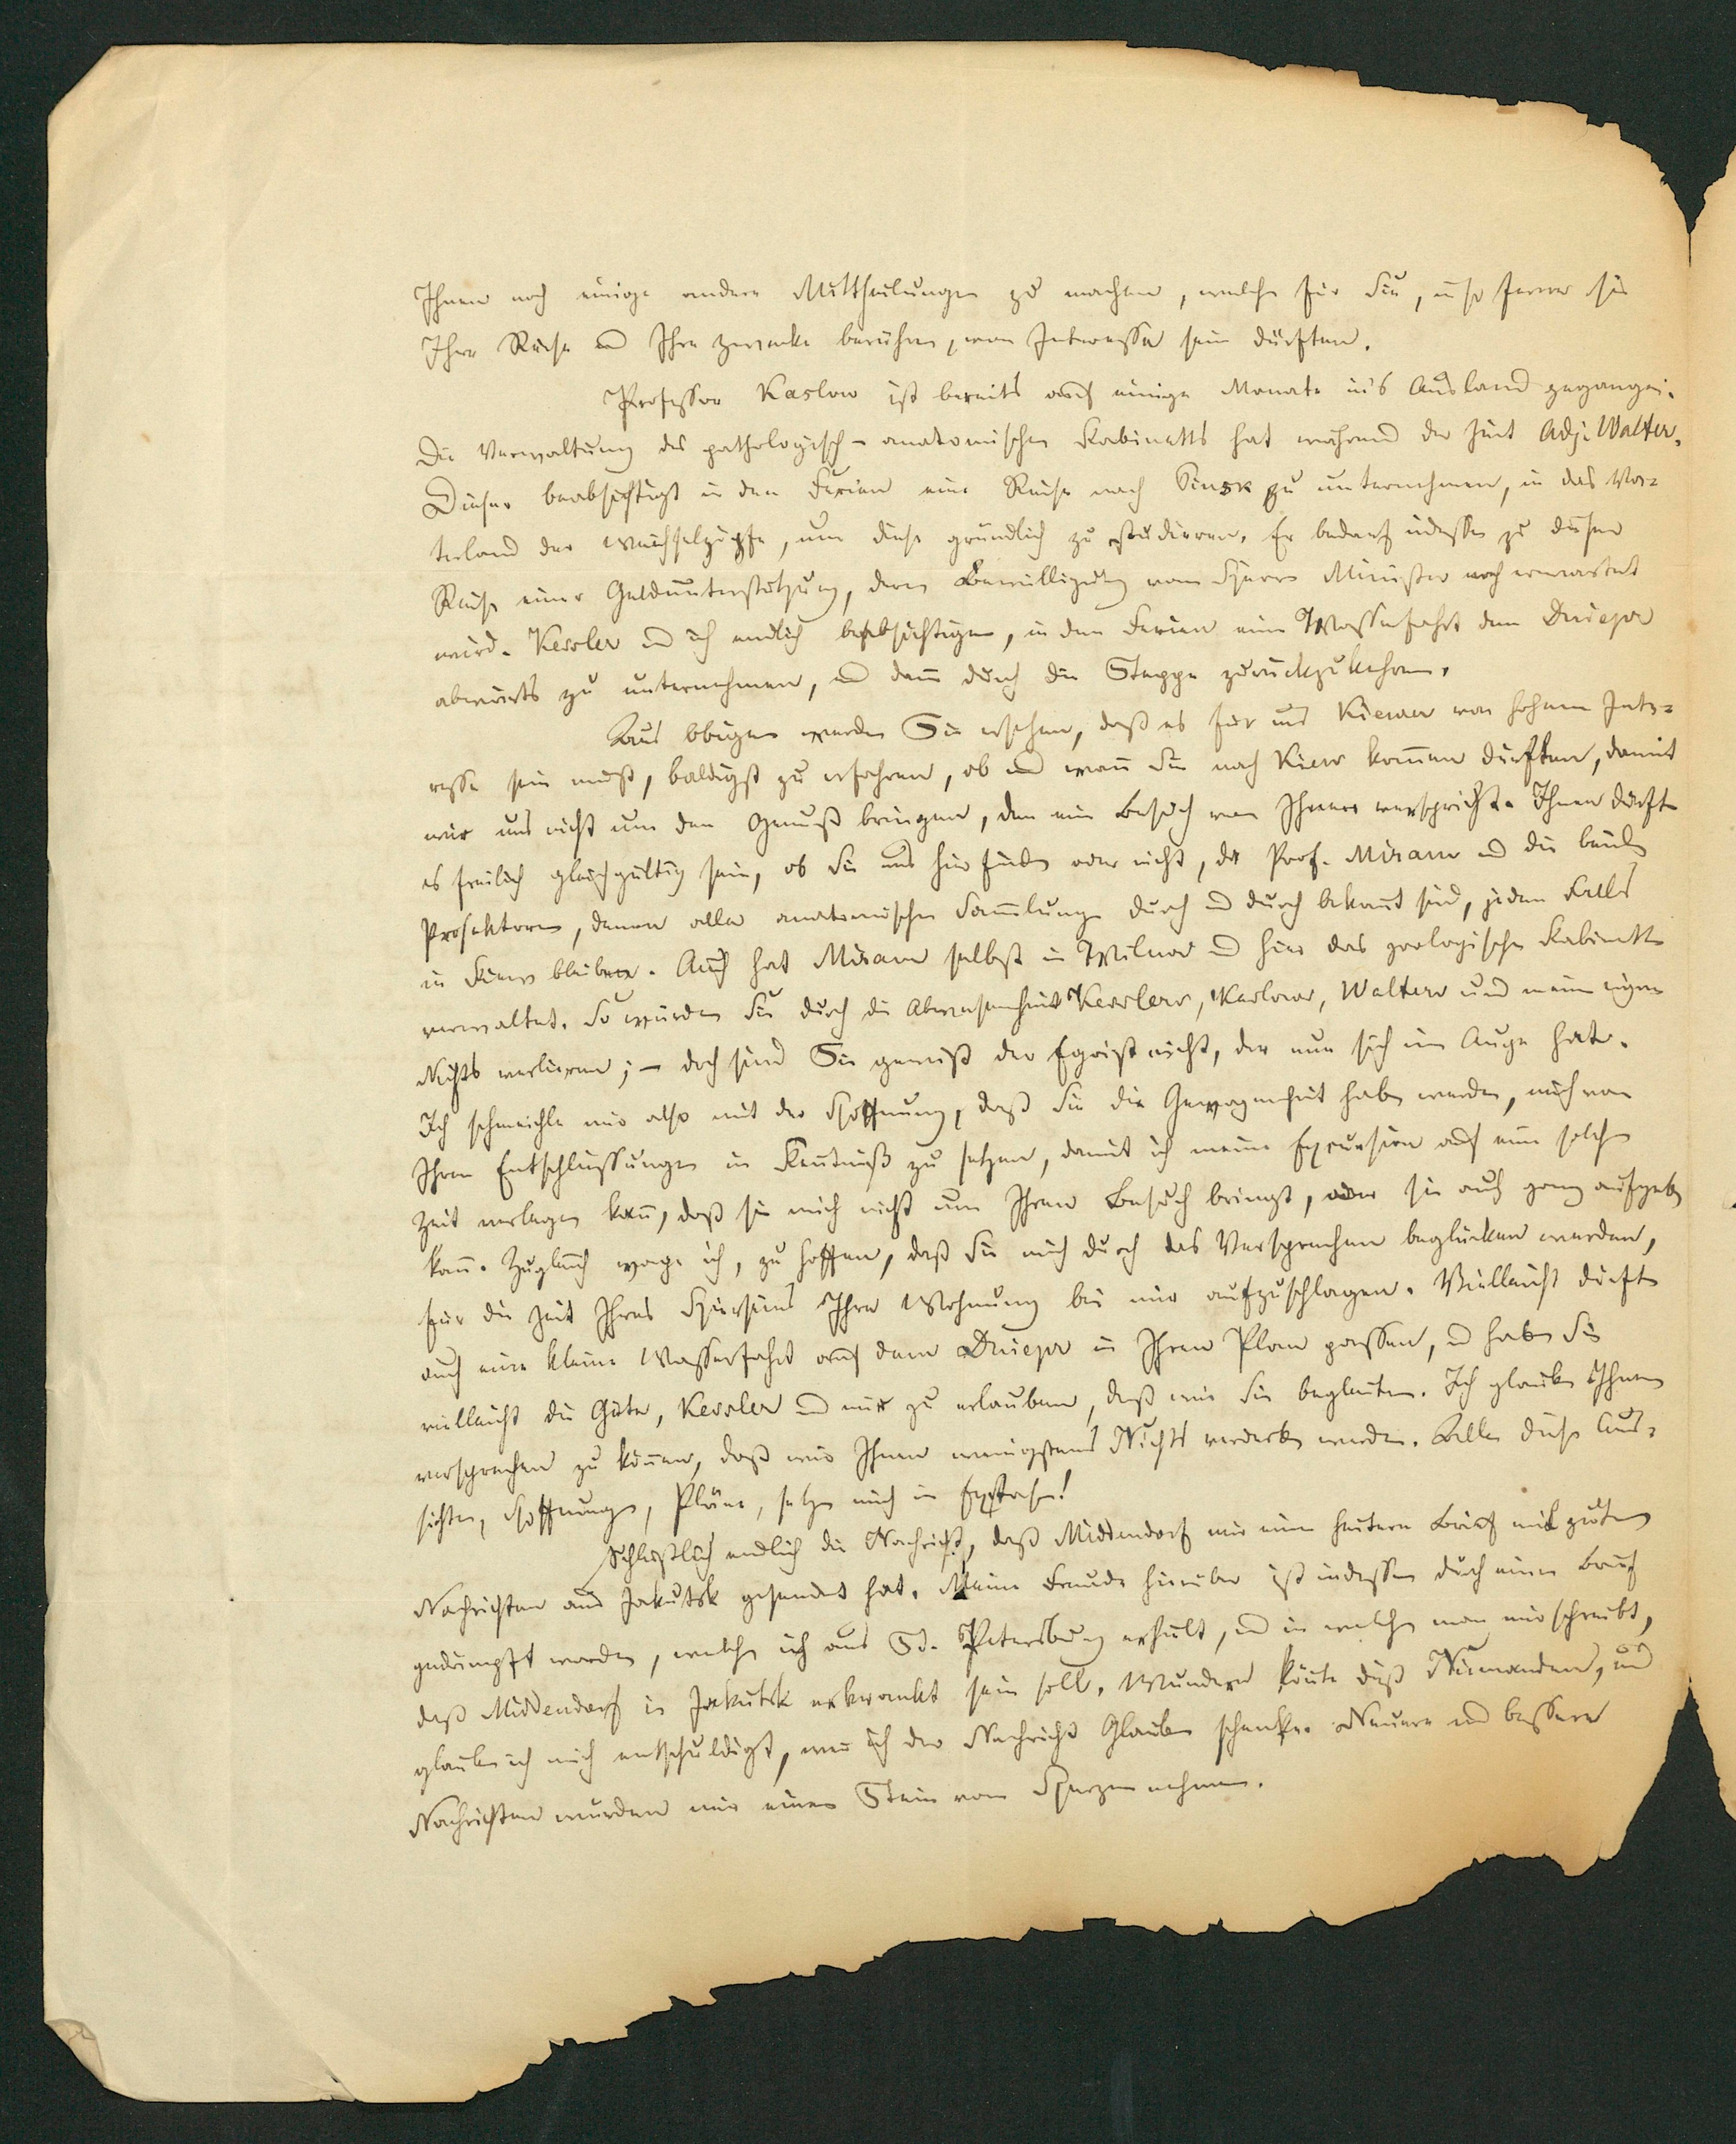 Ihnen noch einige andere Mittheilungen zu machen, welche für Sie, in so ferne sie
Ihre Reise und Ihre Zwecke berühren, von Interesse sein dürften.
Professor Kaslow ist bereits auf einige Monate ins Ausland gegangen.
Die Verwaltung des pathologisch-anatomischen Kabinetts hat während der Zeit Adj. Walter.
Dieser beabsichtigt in den Ferien eine Reise nach Pinsk zu unternehmen, in das Va-
terland der Weichselzöpfe, um diese gründlich zu studieren. Er bedarf indessen zu dieser
Reise einer Geldunterstützung, deren Bewilligung vom Herrn Minister noch erwartet
wird. Kessler und ich endlich beabsichtigen, in den Ferien eine Wasserfahrt den Dniepr
abwärts zu unternehmen, und dann durch die Steppe zurückzukehren.
Aus Obigem werden Sie ersehen, daß es für uns Kiewer von hohem Inte-
resse sein muß, baldigst zu erfahren, ob und wann Sie nach Kiew kommen dürften, damit
wir uns nicht um den Genuß bringen, den ein Besuch von Ihnen verspricht. Ihnen dürfte
es freilich gleichgültig sein, ob Sie uns hier finden oder nicht, da Prof. Miram und die beiden
Prosektoren, denen alle anatomischen Sammlungen durch und durch bekannt sind, jeden Falls
in Kiew bleiben. Auch hat Miram selbst in Wilna und hier das zoologische Kabinett
verwaltet. So würden Sie durch die Abwesenheit Kesslers, Kaslows, Walters und meine eigene
Nichts verlieren; – doch sind Sie gewiß der Egoist nicht, der nur sich im Auge hat.
Ich schmeichle mir also mit der Hoffnung, daß Sie die Gewogenheit haben werden, mich von
Ihren Entschließungen in Kenntniß zu setzen, damit ich meine Excursion auf eine solche
Zeit verlegen kann, daß sie mich nicht um Ihren Besuch bringt, oder sie auch ganz aufgeben
kann. Zugleich wage ich, zu hoffen, daß Sie mich durch das Versprechen beglücken werden,
für die Zeit Ihres Hierseins Ihre Wohnung bei mir aufzuschlagen. Vielleicht dürfte
auch eine kleine Wasserfahrt auf dem Dniepr in Ihren Plan passen, und haben Sie
vielleicht die Güte, Kessler und mir zu erlauben, daß wir Sie begleiten. Ich glaube Ihnen
versprechen zu können, daß wir Ihnen wenigstens Nichts verderben werden. Alle diese Aus-
sichten, Hoffnungen, Pläne, setzen mich in Extase!
Schließlich endlich die Nachricht, daß Middendorf mir einen heitern Brief mit guten
Nachrichten aus Jakutsk gesendet hat. Meine Freude hierüber ist indessen durch einen Brief
gedämpft worden, welchen ich aus St. Petersburg erhielt, und in welchem man mir schreibt,
daß Middendorf in Jakutsk erkrankt sein soll. Wundern könnte dieß Niemanden, und
glaube ich mich entschuldigt, wenn ich der Nachricht Glauben schenke. Neuere und bessere
Nachrichten würden mir einen Stein vom Herzen nehmen.